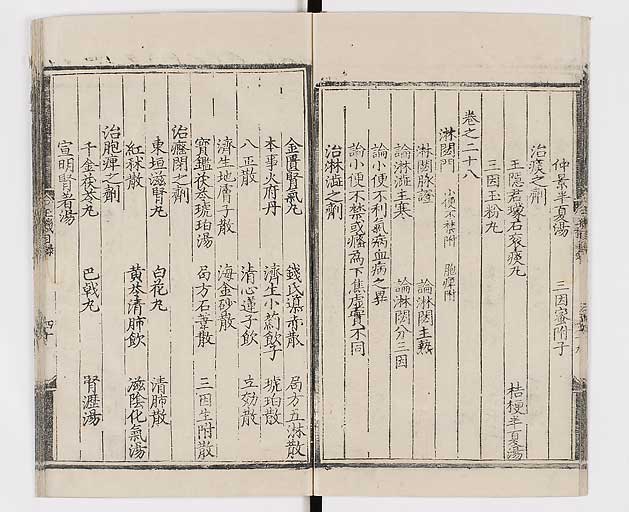 仲景半夏湯 三因蜜附子
治痰之劑
王隱君礞石衮痰丸 桔梗半夏湯
三因玉粉丸
卷之二十八
淋閟門 小便不禁附 胞痺附
淋閟脉證 論淋閟主熱
論淋澁主寒 論淋閟分三因
論小便不利氣病血病之異
論小便不禁或癃爲下焦虛實不同
治淋澁之劑
金匱腎氣丸 錢氏導赤散 局方五淋散
本事火府丹 濟生小薊飲子 琥珀散
八正散 清心蓮子飲 立効散
濟生地膚子散 海金砂散
寳鑑茯苓琥珀湯 局方石葦散 三因生附散
治癃閉之劑
東垣滋腎丸 白花丸 清肺散
紅秫散 黃芩清肺飲 滋陰化氣湯
治胞痺之劑
千金茯苓丸 巴戟丸 腎瀝湯
宣明腎着湯